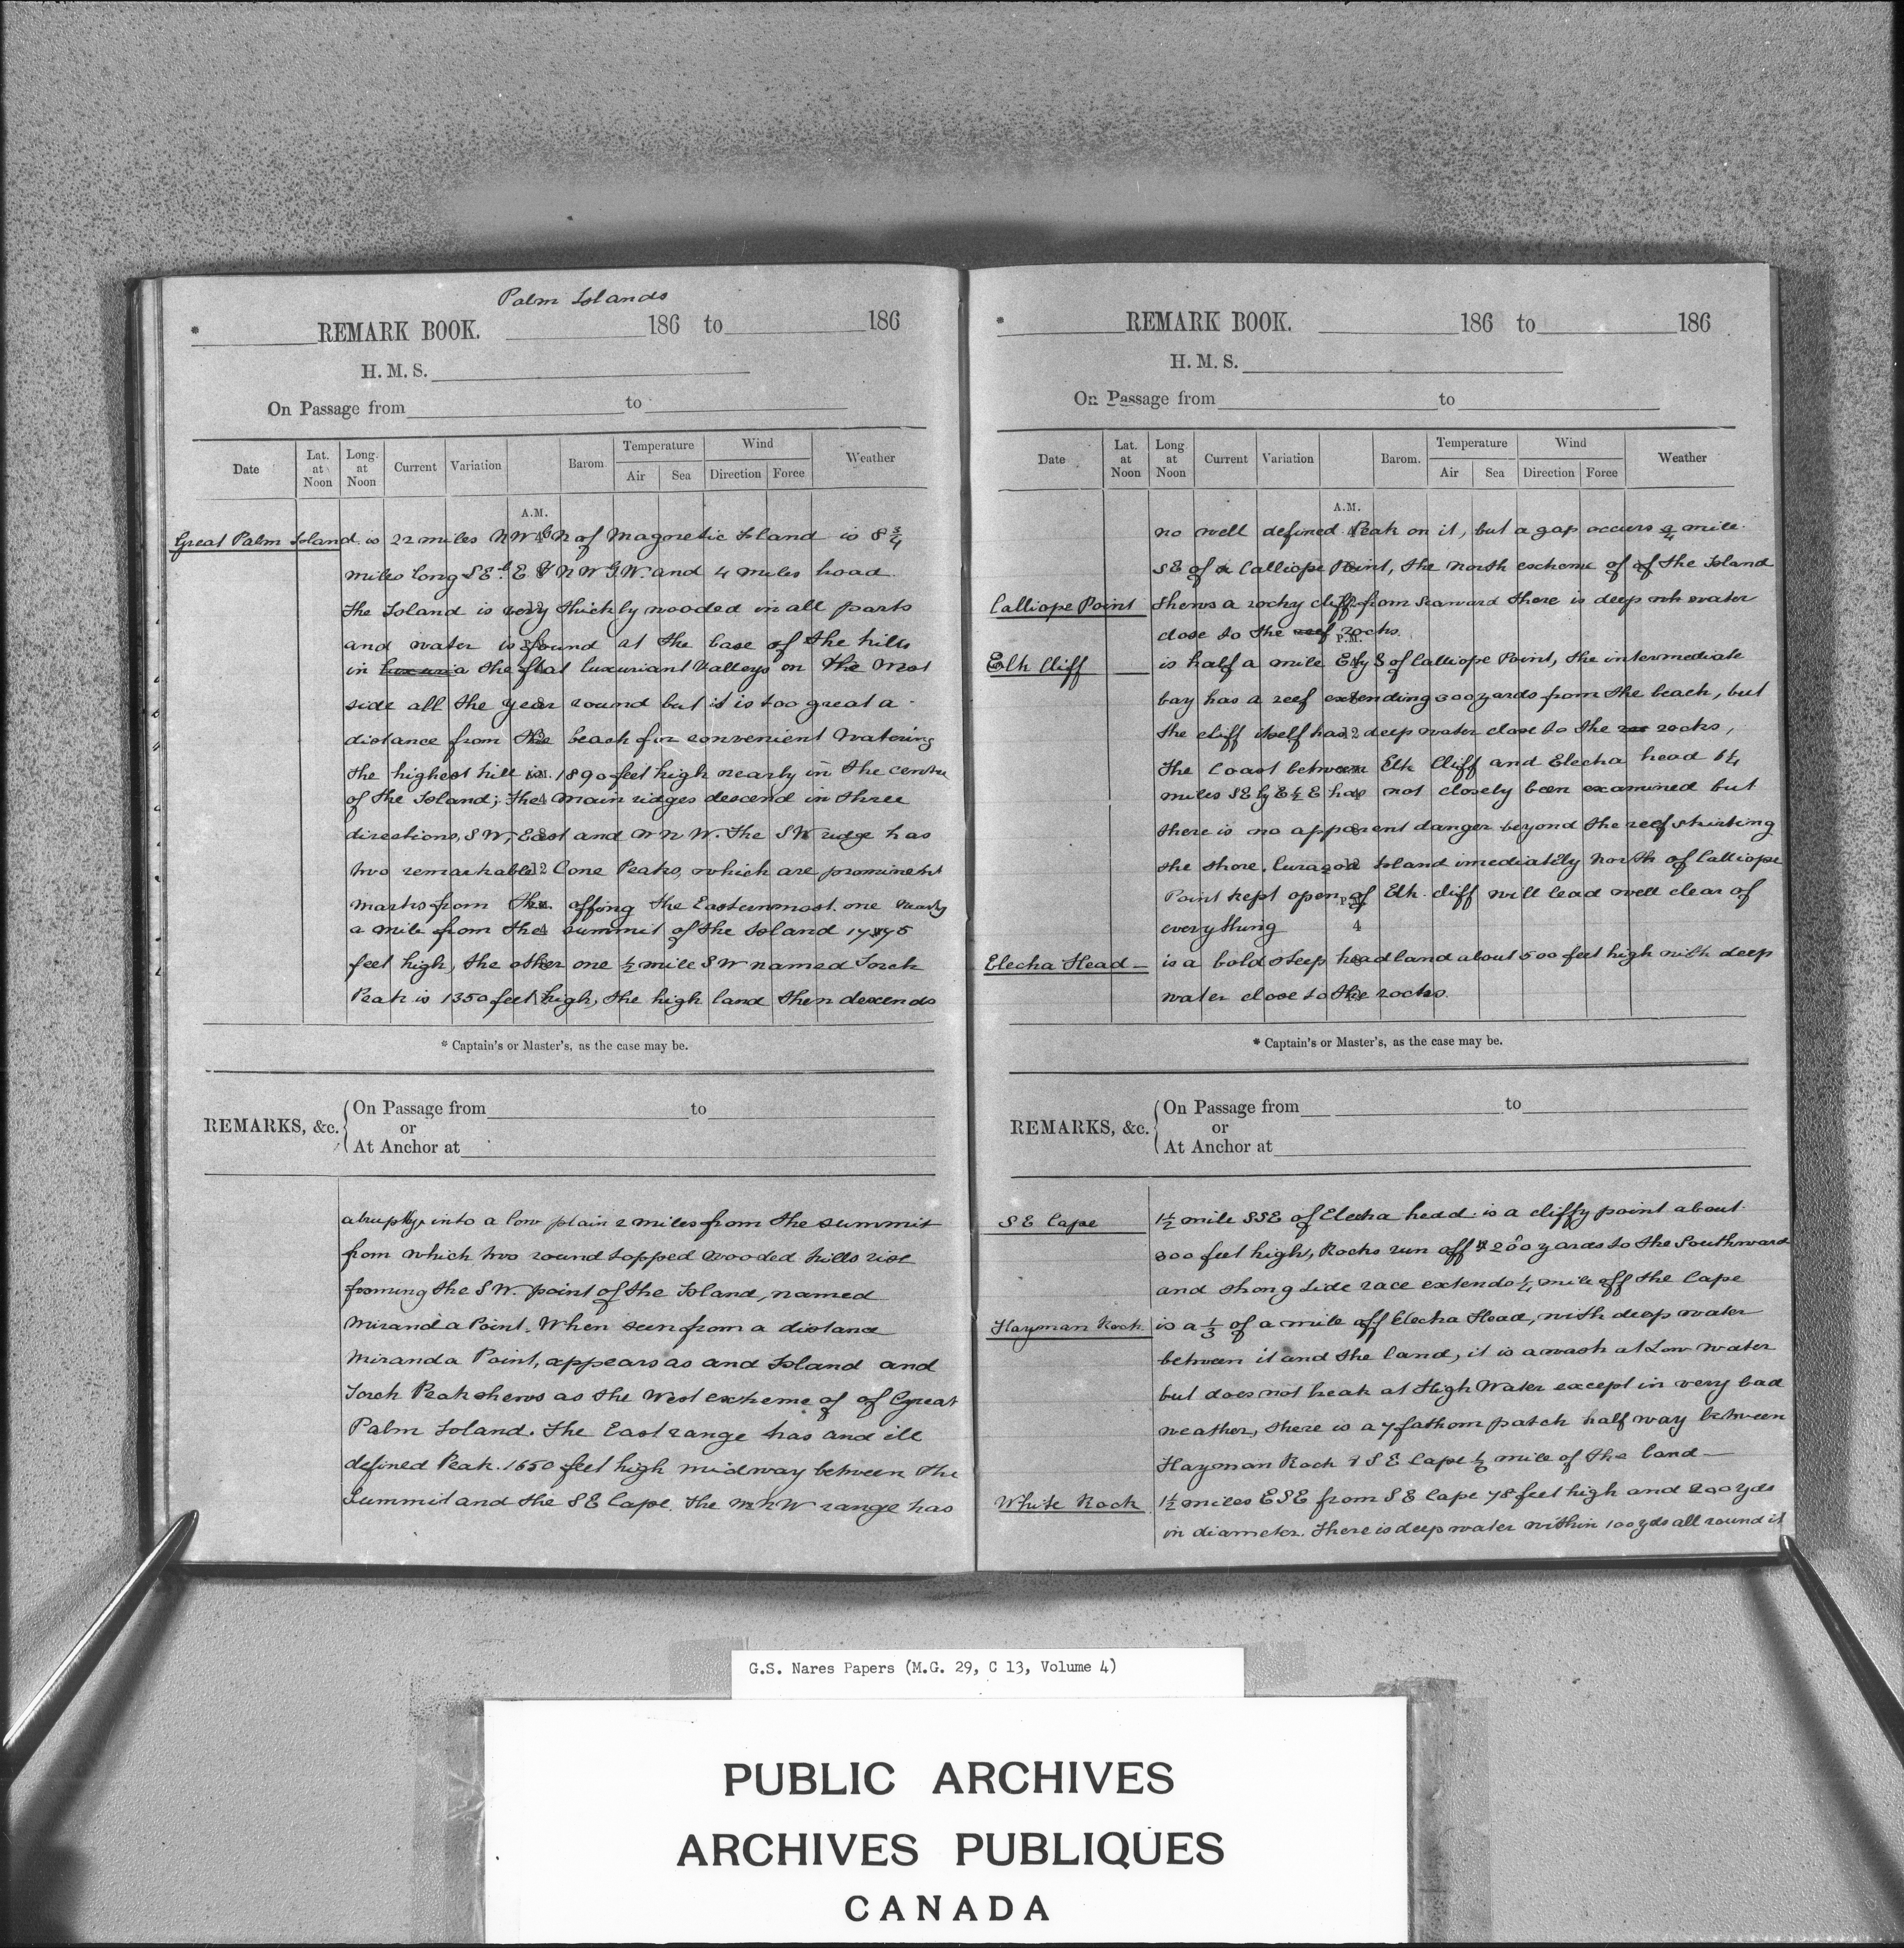 Palm Islands
* REMARK BOOK. 186 to 186
H. M. S.
On Passage from to
Date Lat. at Noon Long. at Noon Current Variation Barom Temperature Air Sea Wind Direction Force Weather
A.M.
Great Palm Island is 22 miles NW b N of Magnetic Island is 8 3/4
miles long SE b E & NW b W. and 4 miles broad.
The Island is very thickly wooded in all parts
and water is found at the base of the hills
in the flat luxuriant Valleys on the West
side all the year round but it is too great a
distance from the beach for convenient Watering
the highest hill is 1890 feet high nearly in the centre
of the Island; the main ridges descend in three
directions, SW, East and WNW. The SW ridge has
two remarkable Cone Peaks, which are prominent
marks from the offing the Easternmost one nearly
a mile from the summit of the Island 1775
feet high, the other one 1/2 mile SW named Torch
Peak is 1350 feet high, the high land then descends
* Captain's or Master's, as the case may be.
REMARKS, &c. On Passage from to
or
At Anchor at
abruptly into a low plain 2 miles from the summit
from which two round topped wooded hills rise
forming the SW. point of the Island, named
Miranda Point. When seen from a distance
Miranda Point, appears as and Island and
Torch Peak shews as the West extreme of of Great
Palm Island. The East range has and ill
defined Peak. 1650 feet high midway between the
Summit and the SE Cape. The WNW range has
* REMARK BOOK. 186 to 186
H. M. S.
On Passage from to
Date Lat. at Noon Long at Noon Current Variation Barom. Temperature Air Sea Wind Direction Force Weather
A.M.
no well defined Peak on it, but a gap occurs 3/4 mile
SE of Calliope Point, the North extreme of of the Island
Calliope Point Shews a rocky cliff from Seaward there is deep water
close to the reef rocks.
P.M.
Elk Cliff is half a mile E by S of Calliope Point, the intermediate
bay has a reef extending 300 yards from the beach, but
the cliff itself has deep water close to the rocks,
The Coast between Elk Cliff and Electra head 1 1/4
miles SE by E 1/2 E has not closely been examined but
there is no apparent danger beyond the reef skirting
the shore. Curaçoa Island imediately North of Calliope
Point kept open of Elk cliff will lead well clear of
everything
4
Electra Head — is a bold steep headland about 500 feet high with deep
water close to the rocks.
* Captain's or Master's, as the case may be.
REMARKS, &c. On Passage from to
or
At Anchor at
SE Cape 1 1/2 mile SSE of Electra head is a cliffy point about
300 feet high, Rocks run off 200 yards to the Southward
and strong tide race extends 1/4 mile off the Cape
Hayman Rock is a 1/3 of a mile off Electra Head, with deep water
between it and the land, it is awash at Low water
but does not break at High Water except in very bad
weather, there is a 7 fathom patch half way between
Hayman Rock & SE Cape 1/2 mile of the land —
White Rock 1 1/2 miles ESE from SE Cape 78 feet high and 200 yds
in diameter. There is deep water within 100 yds all round it
G.S. Nares Papers (M.G. 29, C 13, Volume 4)
PUBLIC ARCHIVES
ARCHIVES PUBLIQUES
CANADA